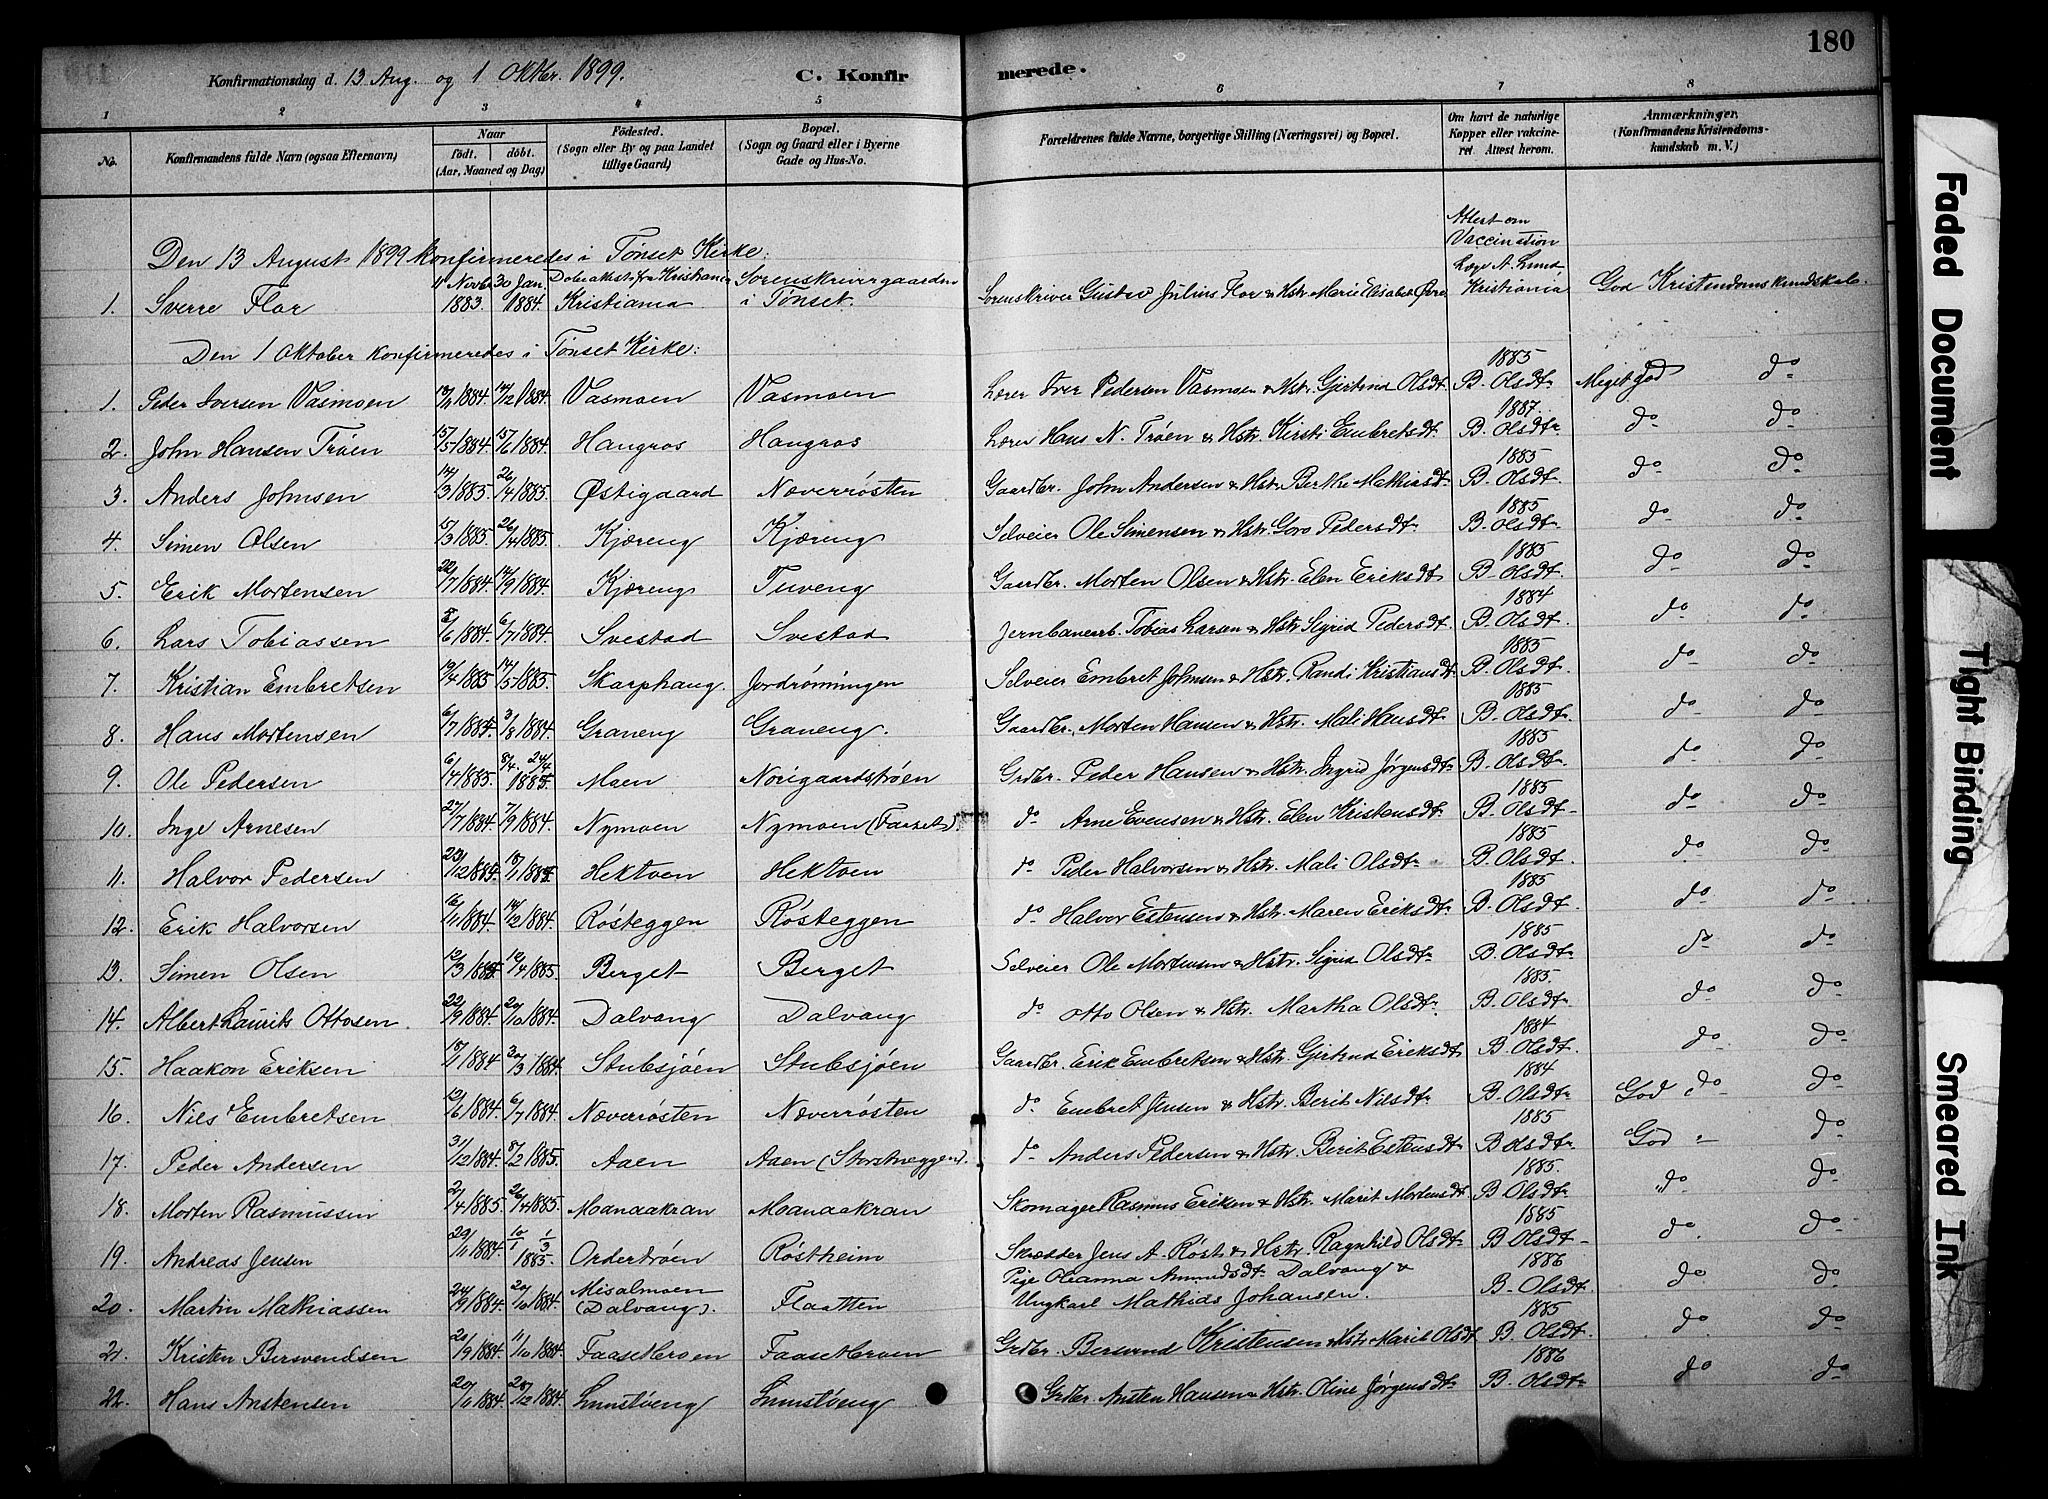 180
Konfirmationsdag d. 13 Aug. og 1 Oktbr. 1899.
C. Konfirmerede.
1 2 3 4 5 6 7 8
No. Konfirmandens fulde Navn (ogsaa Efternavn) Naar født. døbt. (Aar, Maaned og Dag) Fødested. (Sogn eller By og paa Landet tillige Gaard.) Bopæl. (Sogn og Gaard eller i Byerne Gade og Hus-No. Forældrenes fulde Navne, borgerlige Stilling (Næringsvei) og Bopæl. Om havt de naturlige Kopper eller vaccineret Attest herom. Anmærkninger. (Konfirmandens Kristendomskundskab m. V.)
Den 13 August 1899 konfirmeredes i Tønset Kirke:
1. Sverre Flor 11 Novbr 1883. 30 Jan. 1884. Kristiania Sorenskrivergaarden i Tønset. Sorenskriver Gustav Julius Flor & Hstr. Marie Elisabet Attest om Vaccination Læge A. Lund Kristiania God Kristendomskundskab.
Den 1 Oktober konfirmeredes i Tønset Kirke:
1. Peder Iversen Vasmoen 13/11 1884. 14/12 1884. Vasmoen Vasmoen Lærer Iver Pedersen Vasmoen & Hstr. Gjertrud Olsdt. 1885 B. Olsdtr. Meget god do
2. John Hansen Trøen 15/5 1884. 15/6 1884. Haugros Haugros Lærer Hans N. Trøen & Hstr. Kirsti Embretsdt. 1887. B. Olsdtr. do do
3. Anders Johnsen 14/3 1885. 26/4 1885. Østigaard Næverrøsten Gaardbr. John Andersen & Hstr. Berthe Mathiasdt. 1885 B. Olsdtr. do do
4. Simen Olsen 15/3 1885. 26/4 1885. Kjæreng Kjæreng Selveier Ole Simensen & Hstr. Goro Pedersdtr. 1885 B. Olsdtr. do do
5. Erik Mortensen 22/7 1884. 14/9 1884. Kjæreng Tuveng Gaardbr. Morten Olsen & Hstr. Elen Eriksdtr 1885 B. Olsdt. do do
6. Lars Tobiassen 8/6 1884. 6/7 1884. Svestad Svestad Jernbanearb. Tobias Larsen & Hstr. Sigrid Pedersdt. 1884 B. Olsdt. do do
7. Kristian Embretsen 19/4 1885 14/5 1885. Skarphaug. Jordrømningen Selveier Embret Johnsen & Hstr. Randi Kristiansdt. 1885 B. Olsdt. do do
8. Hans Mortensen 6/7 1884. 3/8 1884. Graneng Graneng. Gaardbr. Morten Hansen & Hstr. Mali Hansdtr. 1885 B. Olsdtr. do do
9. Ole Pedersen 6/4 1885. 8/4. 24/4 1885. Moen Norigaardstrøen Grdbr. Peder Hansen & Hstr. Ingrid Jørgensdtr. 1885 B. Olsdtr. do do
10. Inge Arnesen 27/7 1884. 7/9 1884. Nymoen Nymoen (Faaset) do Arne Evensen & Hstr. Elen Kristensdt. 1885 B. Olsdtr. do do
11. Halvor Pedersen 23/12 1884. 18/1 1885. Hektoen Hektoen do Peder Halvorsen & Hstr. Mali Olsdtr. 1885 B. Olsdt. do do
12. Erik Halvorsen 16/11 1884. 14/12 1884. Røsteggen Røsteggen do Halvor Estensen & Hstr. Maren Eriksdtr. 1885 B. Olsdt. do do
13. Simen Olsen 12/3 1885. 12/4 1885. Berget Berget Selveier Ole Mortensen & Hstr. Sigrid Olsdtr. 1885 B. Olsdtr. do do
14. Albert Laurits Ottosen. 22/9 1884. 20/10 1884. Dalvang Dalvang do Otto Olsen & Hstr. Martha Olsdtr. 1885. B. Olsdt. do do
15. Haakon Eriksen 18/1 1884 30/3 1884. Stubsjøen Stubsjøen Gaardbr. Erik Embretsen & Hstr. Gjertrud Eriksdt 1884 B. Olsdt. do do
16. Nils Embretsen 12/6 1884. 6/7 1884. Næverrøsten Næverrøsten do Embret Jensen & Hstr. Berit Nilsdtr. 1884 B. Olsdtr. God do do
17. Peder Andersen 31/12 1884. 8/2 1885. Aaen Aaen do Anders Pedersen & Hstr. Berit Estensdtr. 1885 B. Olsdtr. God do
18. Morten Rasmussen 2/4 1885. 26/4 1885. Manaakran Manaakran Skomager Rasmus Eriksen & Hstr. Marit Mortensdt 1885. B. Olsdtr. do do
19. Andreas Jensen 29/11 1884. 10/1 1/3 1885. Ordertrøen Røstheim Skrædder Jens A. Røst & Hstr. Ragnhild Olsdtr. 1885 B. Olsdtr. do. do
20. Martin Mathiassen 24/9 1884. 20/10 1884. Misalmoen (Dalvang). Flaatten Pige Oleanna Amundsdtr. Dalvang & Ungkarl Mathias Johansen. 1886 B. Olsdtr. do do
21. Kristen Bersvendsen 20/9 1884. 11/10 1884. Faasetbroen Faasetbroen Grdbr. Bersvend Kristensen & Hstr. Marit Olsdt. 1885 B. Olsdtr. do do
22. Hans Anstensen 20/11 1884. 28/12 1884. Lunstøeng Lunstøeng Grdbr. Ansten Hansen & Hstr. Oline Jørgensdtr. 1886 B. Olsdtr. do do
Faded Document
Tight Binding
Smeared Ink